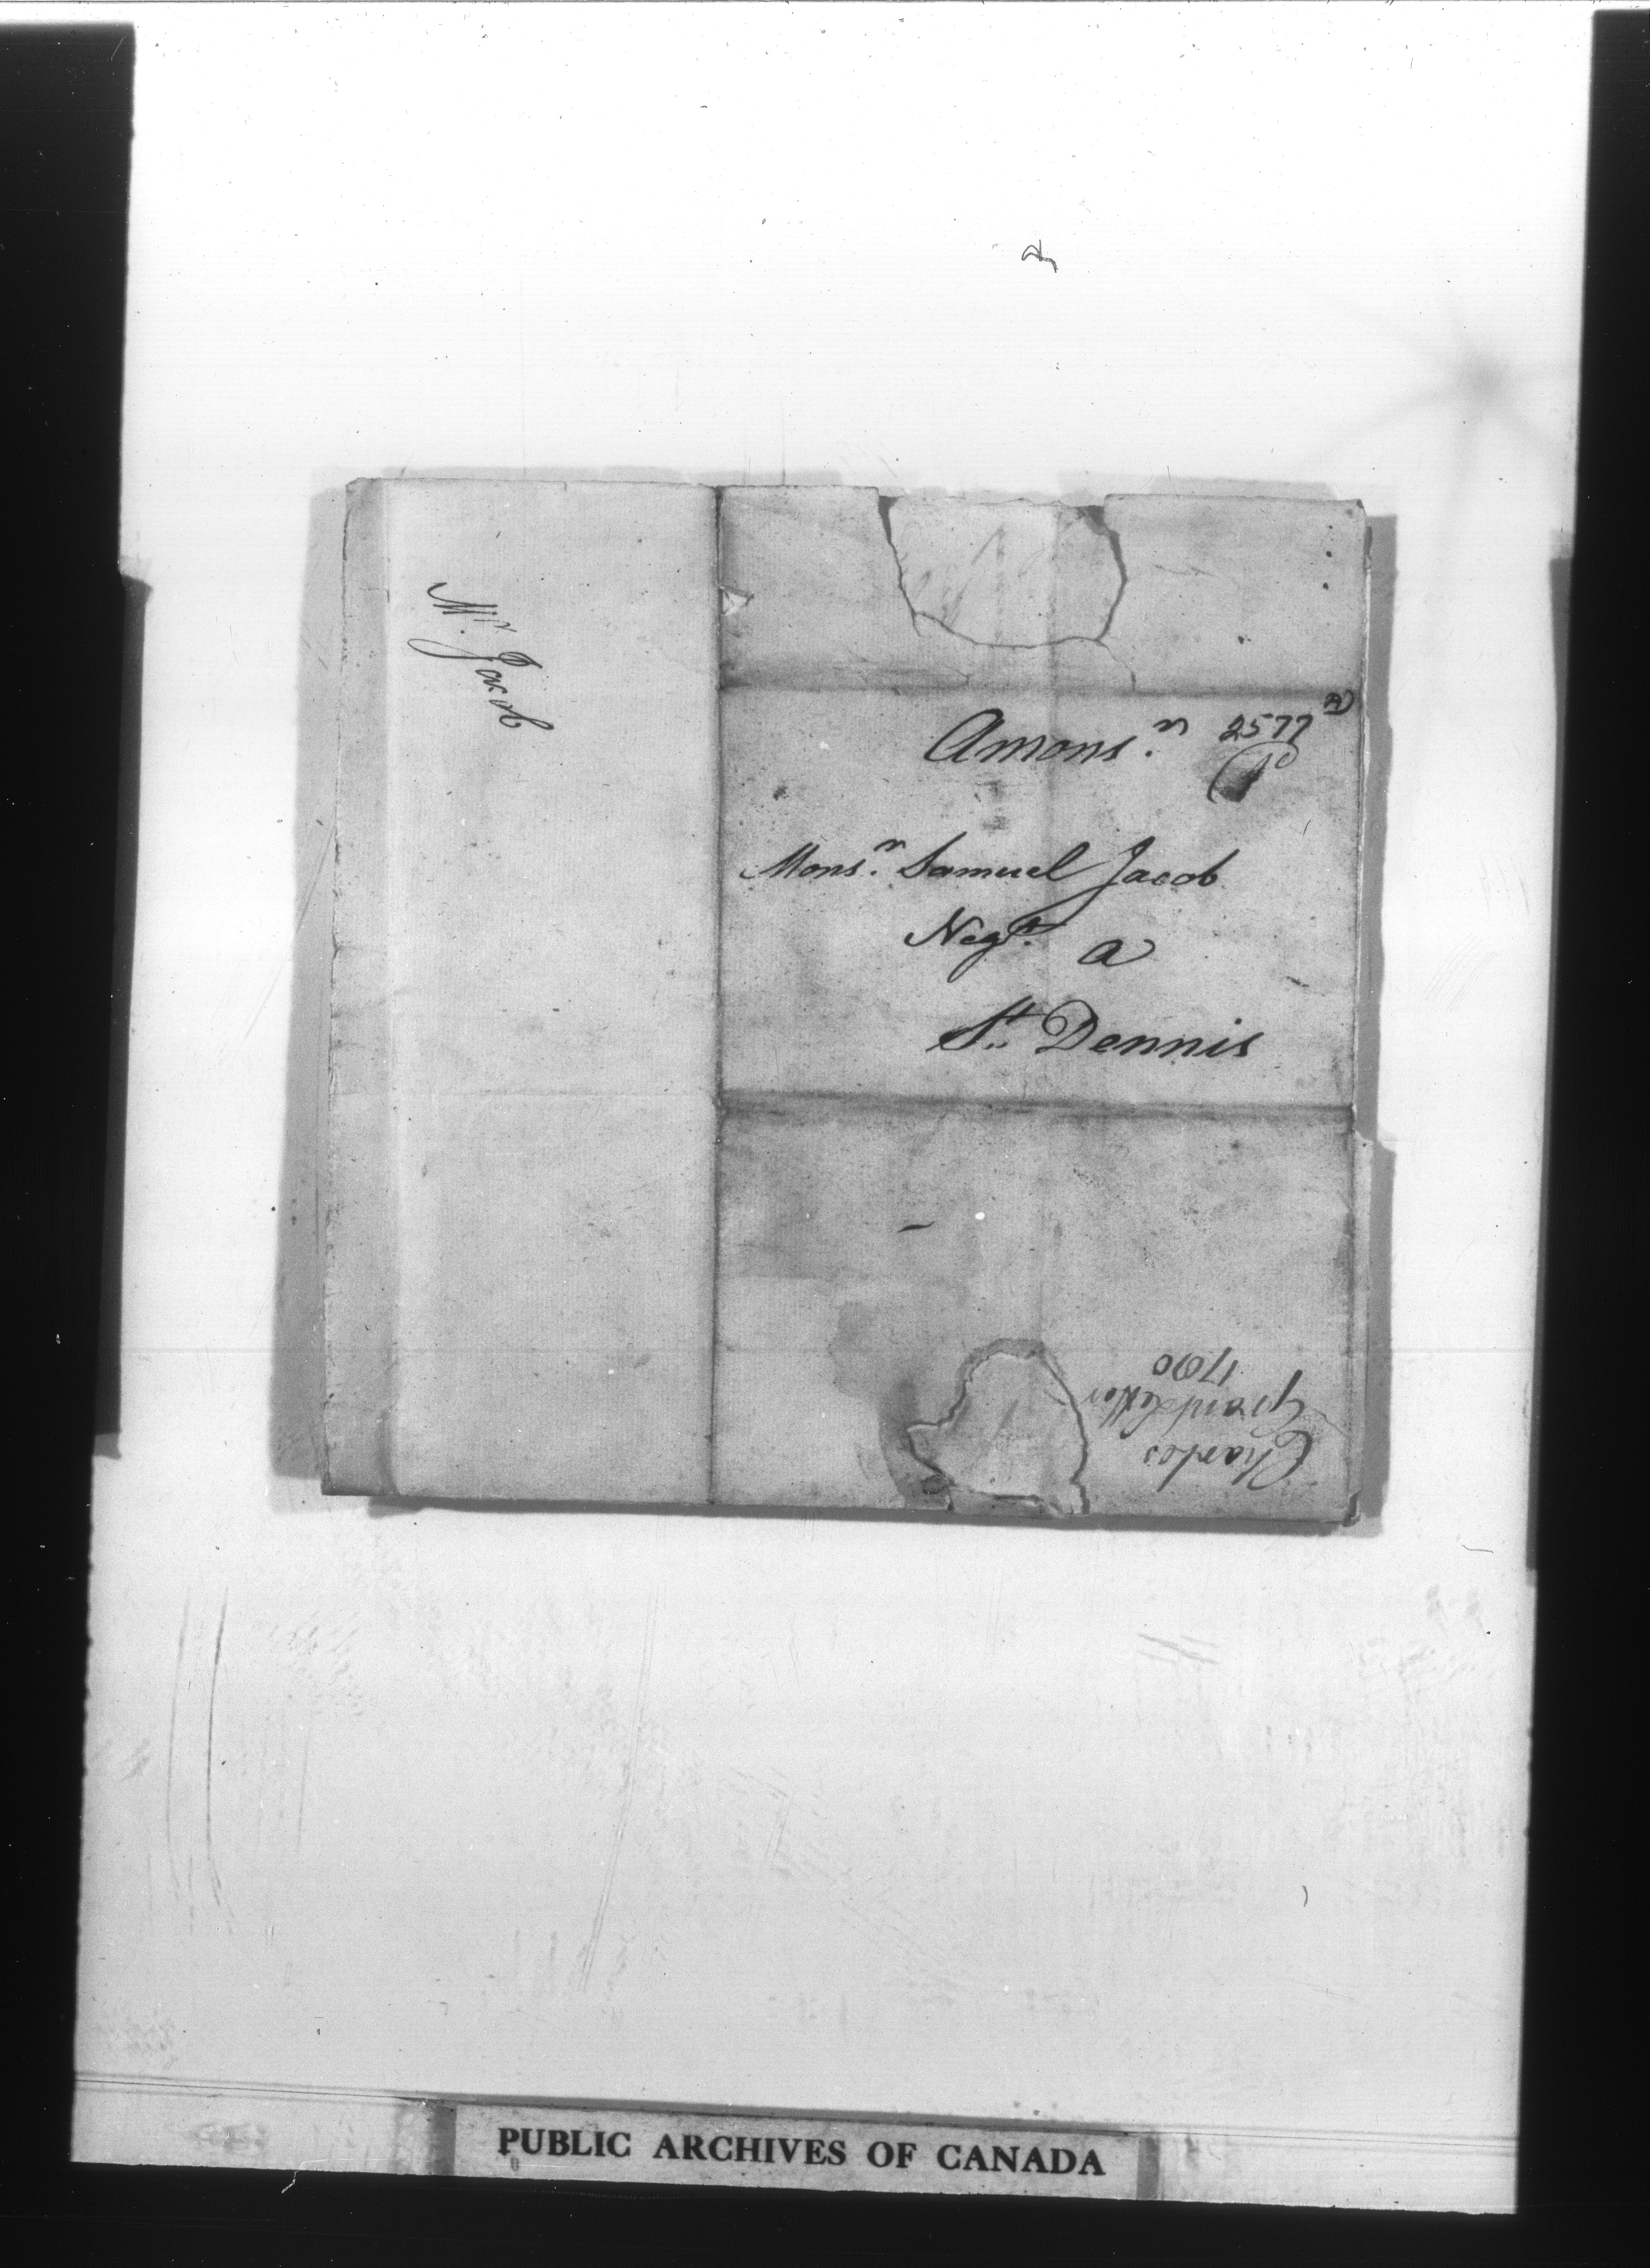 Mr. Jacob
Amons.r 2577
Mons.r Samuel Jacob
Neg.t a
St. Dennis
Charles
Grant Letter
PUBLIC ARCHIVES OF CANADA